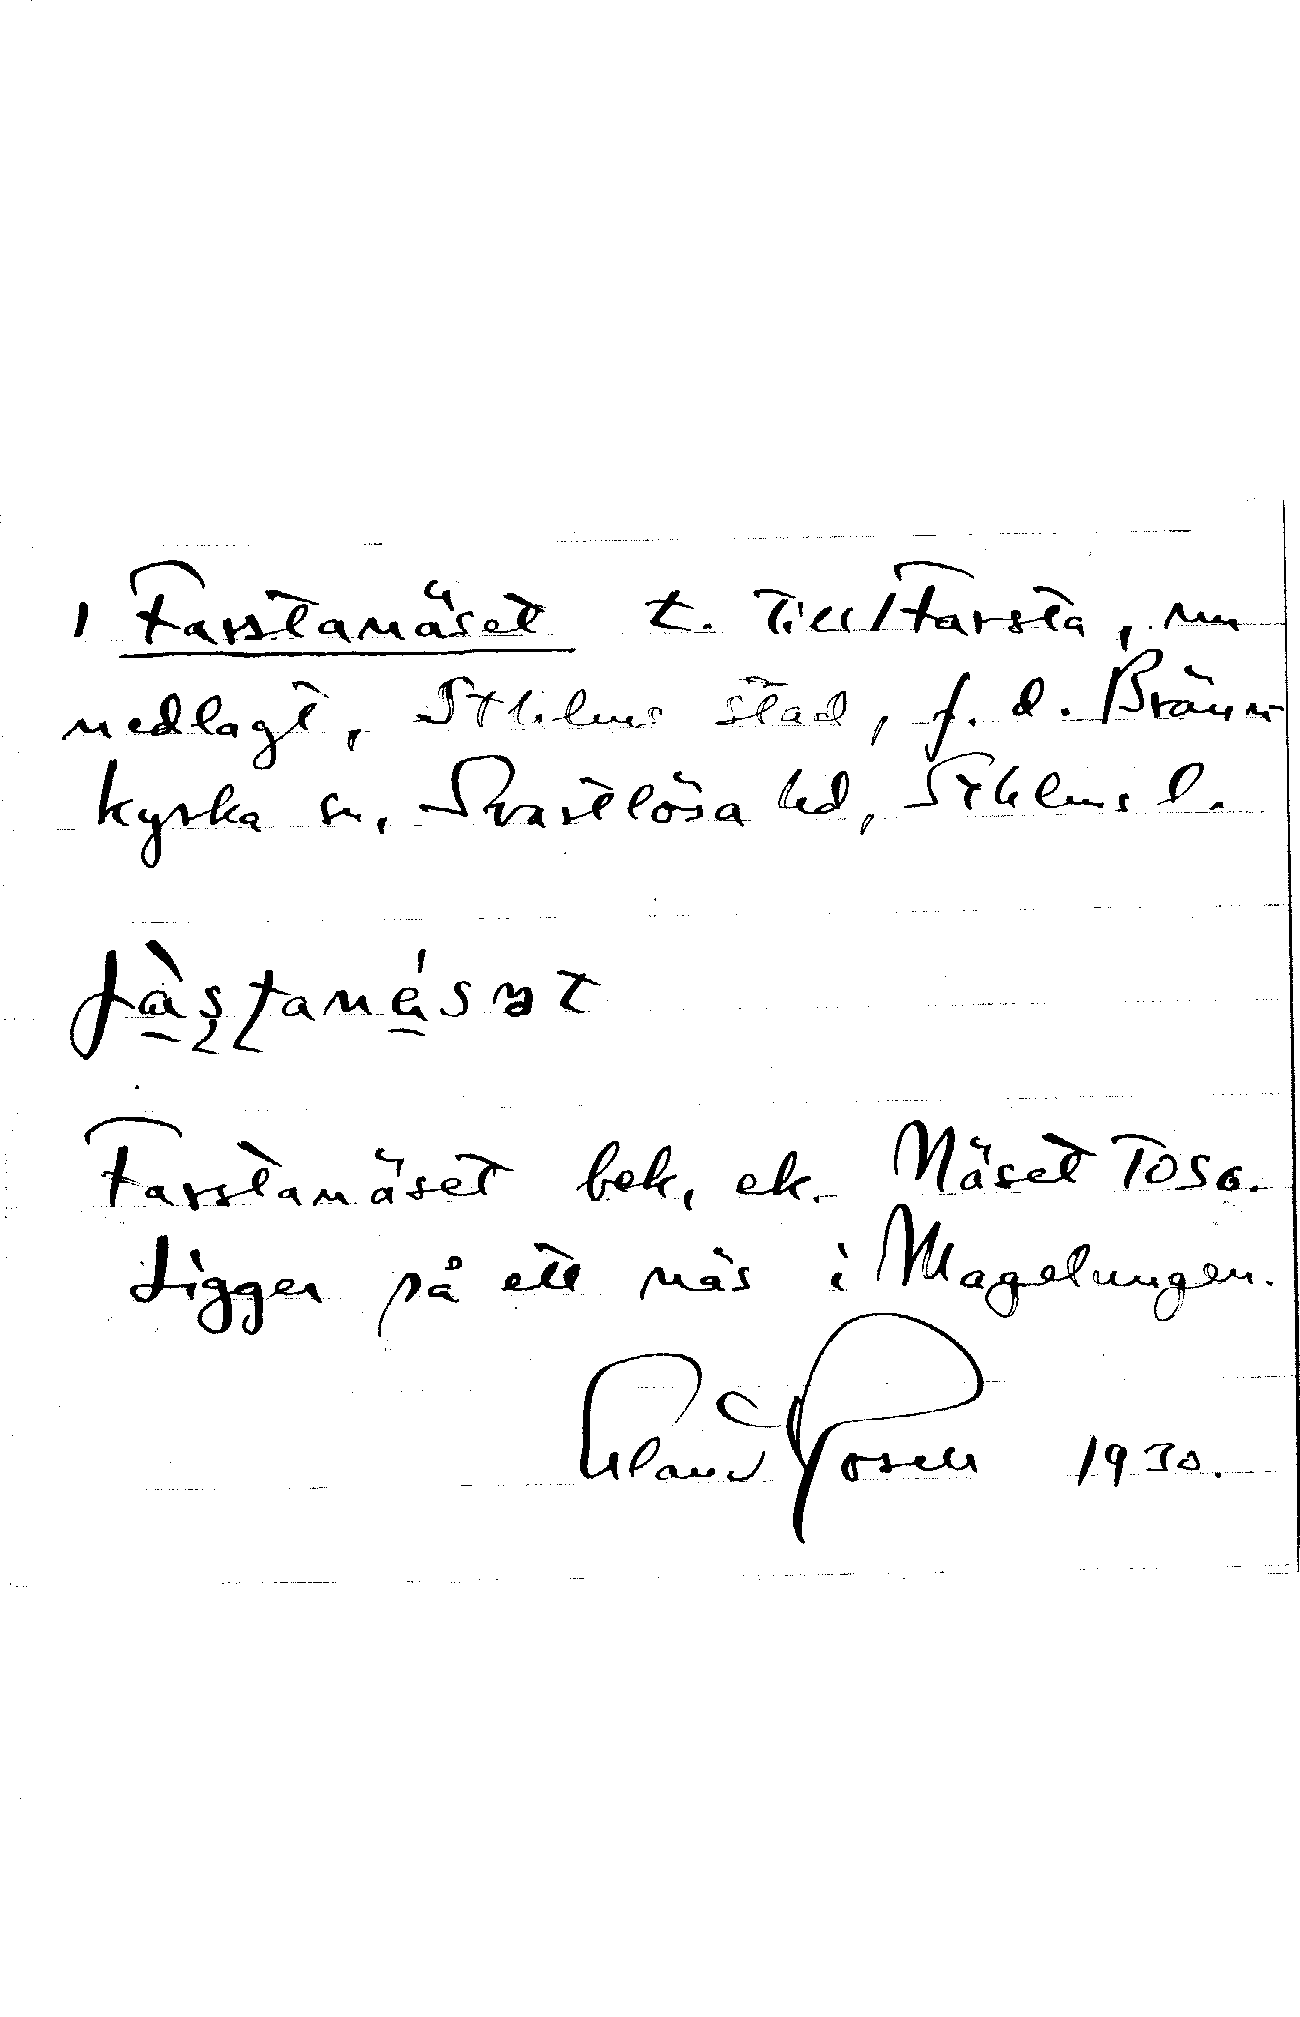 1 Farstanäset t. till 1 Farsta, nu
nedlagt, Sthlms stad, f. d. Bränn-
kyrka sn, Svartlösa hd, Sthlms l.
fàʂʈanäsət
Farstanäset bek, ek. Näset TOSo.
Ligger på ett näs i Magelungen.
Erland Rosell 1930.